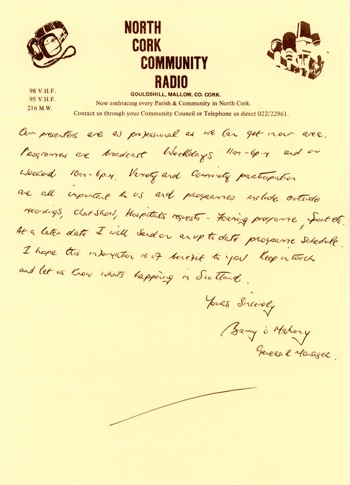 NORTH
CORK
COMMUNITY
RADIO
GOULDSHILL, MALLOW, CO. CORK.
98 V.H.F.
95 V.H.F.
216 M.W.
Now embracing every Parish & Community in North Cork.
Contact us through your Community Council or Telephone us direct 022/22961.
Our presenters are as professional as we can get in our area.
Programmes are broadcast Weekdays 11am-6pm and on
Weekend 10am-6pm. Variety and Community participation
are all important to us and programmes include outside
recordings, chat show, Hospitals requests - farming programme, Sport etc.
At a later date I will send on an up to date programme schedule.
I hope this information is of benefit to you. Keep in touch
and let us know whats happening in Scotland.
Yours Sincerely
Barry O Mahony
General Manager.